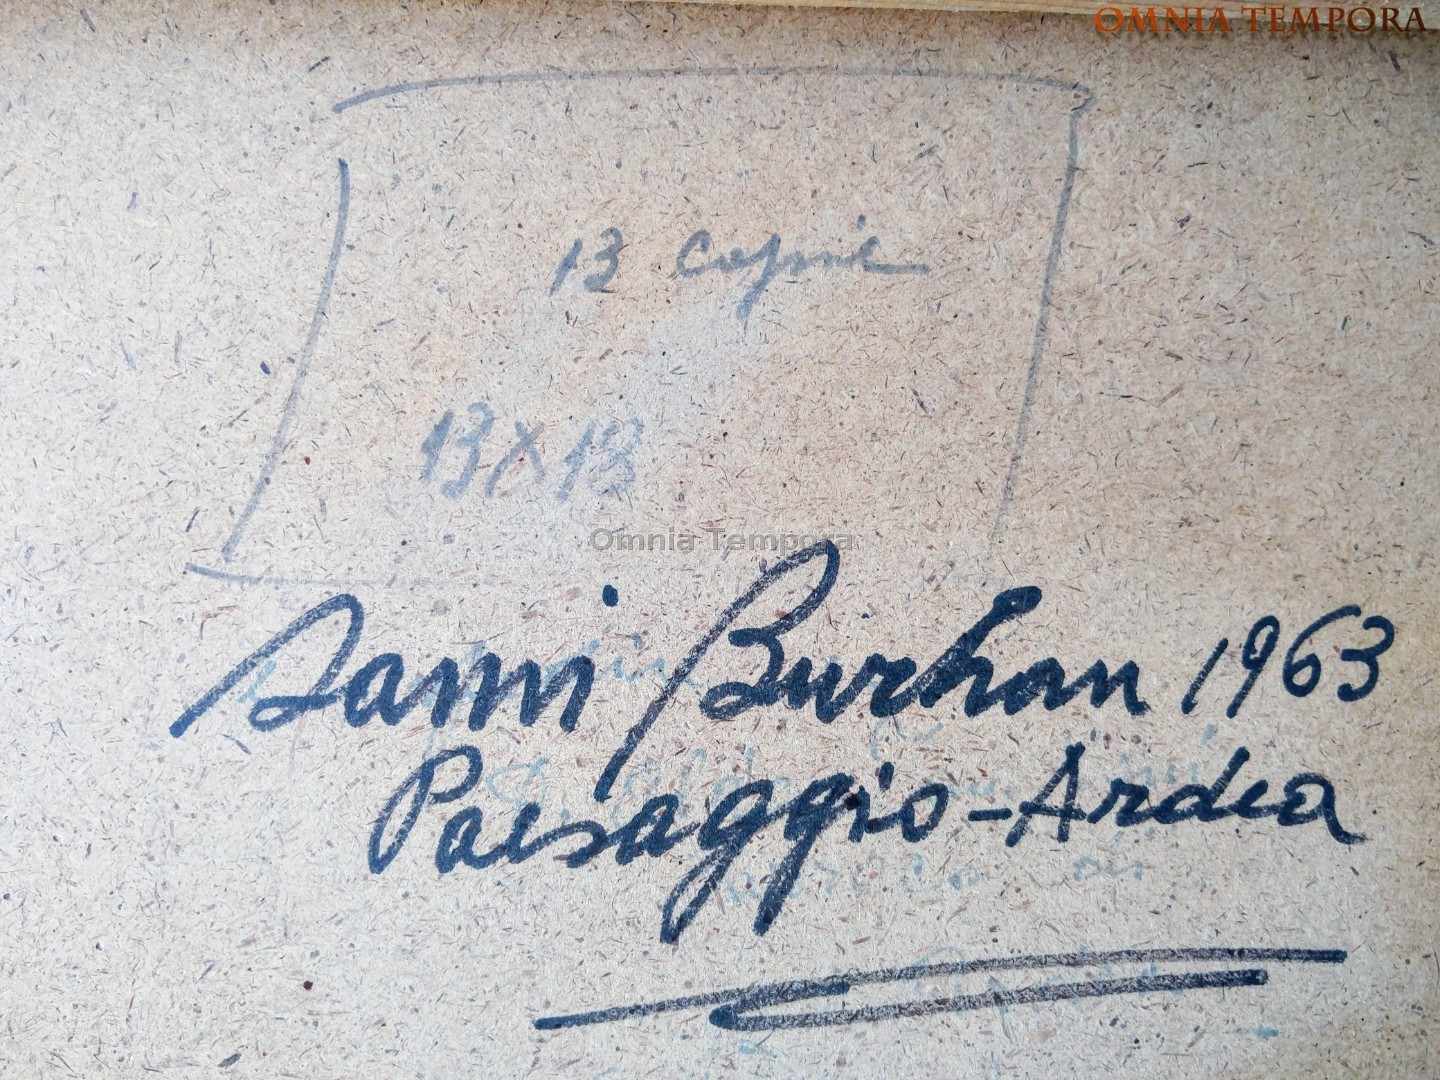 OMNIA TEMPORA
13 copie
13x18
Omnia Tempora
Sami Burhan 1963
Paesaggio-Ardea